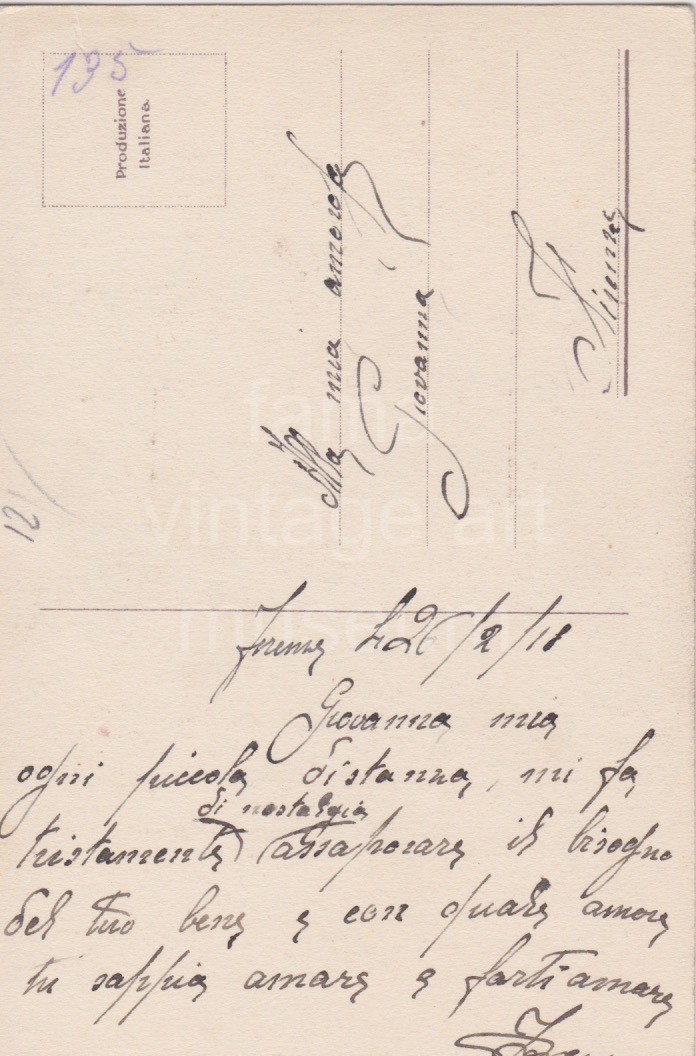 135
Produzione
Italiana
Alla mia amorosa
Giovanna
Firenze
121
fame
vintage art
museum
Firenze li 26/2/18
Giovanna mia
ogni piccola distanza, mi fa
di nostalgia
tristamente assaporare il bisogno
del tuo bene e con quale amore
tu sappia amare e farti amare